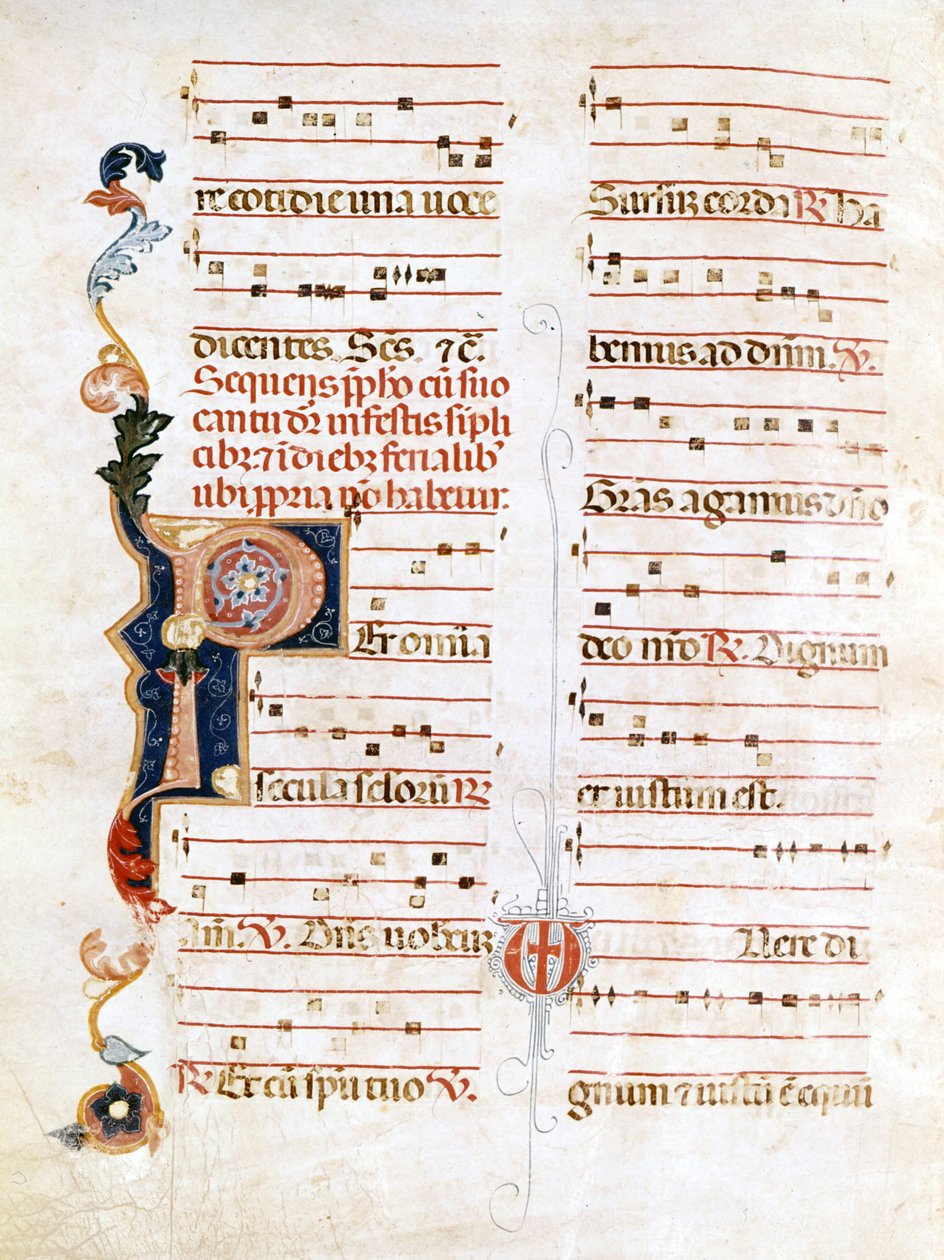 re cotidie una uoce
dicentes. Scs. ⁊ c̄.
Sequens p̄pho cū suo
cantu dr̄ in festis sīpli
cibꝫ ⁊ ī diebꝫ ferialibꝰ
ubi ꝓpria nō habetur.
Per om̄ia
secula sclorū ℟
Am̄. ℣. Dn̄s uobcuꝫ
℟ Et cū spū tuo ℣.
Sursuꝫ corda ℟ ha
bemus ad dn̄m. ℣.
Gr̄as agamus dn̄o
deo nr̄o ℟. Dignum
et iustum est.
Uere di
gnum ⁊ iustū ē equū